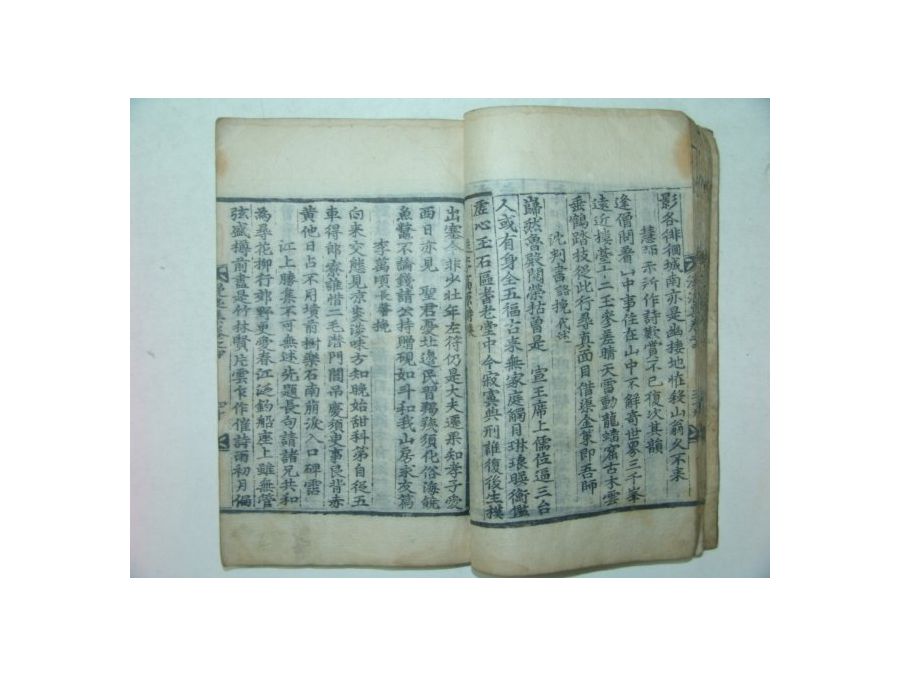 影各徘徊城南亦是幽棲地怪殺山翁久不来
慧 示所作詩歎賞不已復次其韻
逢僧問着山中事住在山中不解奇世界三千峯
遠近樓䑓十二玉參差晴天雪動龍蟠窟古木雲
垂鶴踏枝從此行尋真面目借渠金篦即吾師
沈判書詻挽代人
巋然魯殿閱榮枯曽是 宣王席上儒位逼三台
人或有身全五福古来無家庭觸目琳琅暎衡鑑
虛心玉石區耆老堂中今寂寞典刑誰復後生摸
出塞 非少壮年左符仍是大夫遷果知孝子愛
西日亦見 聖君憂北邊民習羯 須化俗海饒
魚鼈不論錢請公持贈硯如斗和我山居家友篇
李萬頃長馨挽
向来交態見凉炎淡味方知晚始甜科第自従五
車得郎寮誰惜二毛潜門闌吊慶須臾事良背赤
黄他日占不用墳前樹樂石南萠淚入口碑霑
江上勝集不可無述先題長句請諸兄共和
為尋花柳行郊野更愛春江泛釣船座上雖無管
弦盛樽前盡是竹林賢片雲乍作催詩雨初月偏